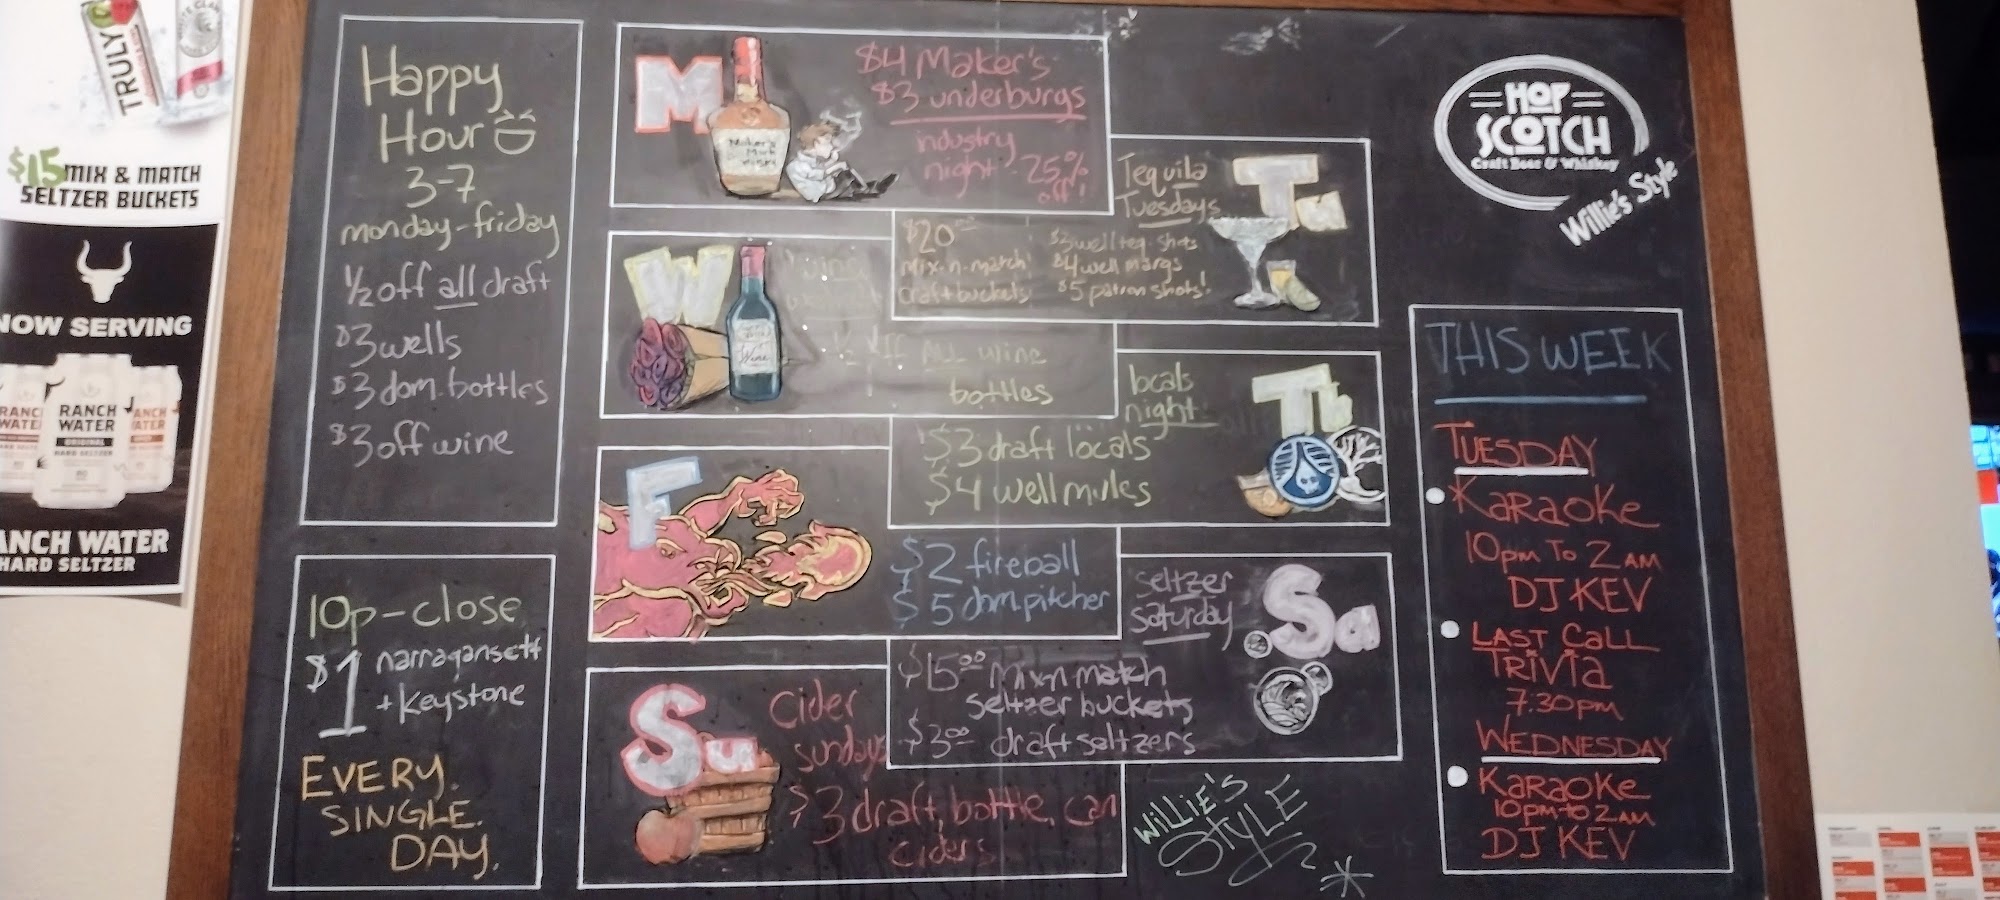 TRULY
WHITE CLAW
$15 MIX & MATCH
SELTZER BUCKETS
NOW SERVING
RANCH
WATER
ORIGINAL
HARD SELTZER
RANCH WATER
HARD SELTZER
Happy
Hour
3-7
monday-friday
1/2 off all draft
$3 wells
$3 dom. bottles
$3 off wine
10p-close
$1 narragansett
+ Keystone
EVERY.
SINGLE.
DAY.
M
Maker's
Mark
$4 Maker's
$3 underburgs
industry
night - 25%
off!
Tequila
Tuesdays
Tu
$20.00
mix-n-match
craft buckets
$3 well teq. shots
$4 well margs
$5 patron shots!
W
Wine
1/2 off ALL wine
bottles
locals
night
Th
$3 draft locals
$4 well mules
F
$2 fireball
$5 dom pitcher
seltzer
saturday
Sa
$15.00 Mix n match
seltzer buckets
$3.00 draft seltzers
Su
Cider
sundays
$3 draft, bottle, can
ciders
WilliE'S
STYLE
HOP
SCOTCH
Craft Beer & Whiskey
Willie's Style
THIS WEEK
TUESDAY
KARAOKE
10pm TO 2AM
DJ KEV
LAST CALL
TRIVIA
7:30pm
WEDNESDAY
KARAOKE
10pm-to 2AM
DJ KEV